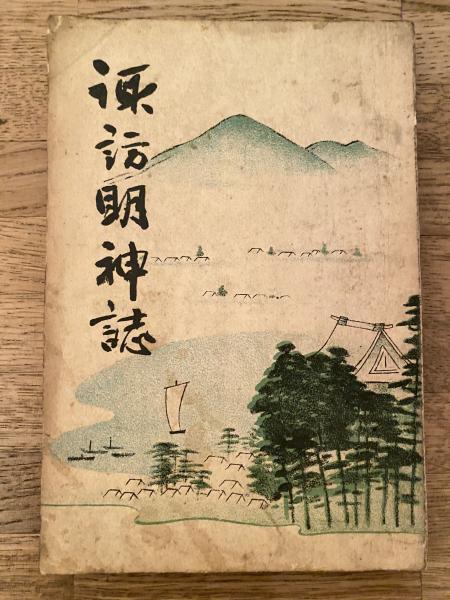 諏訪明神誌